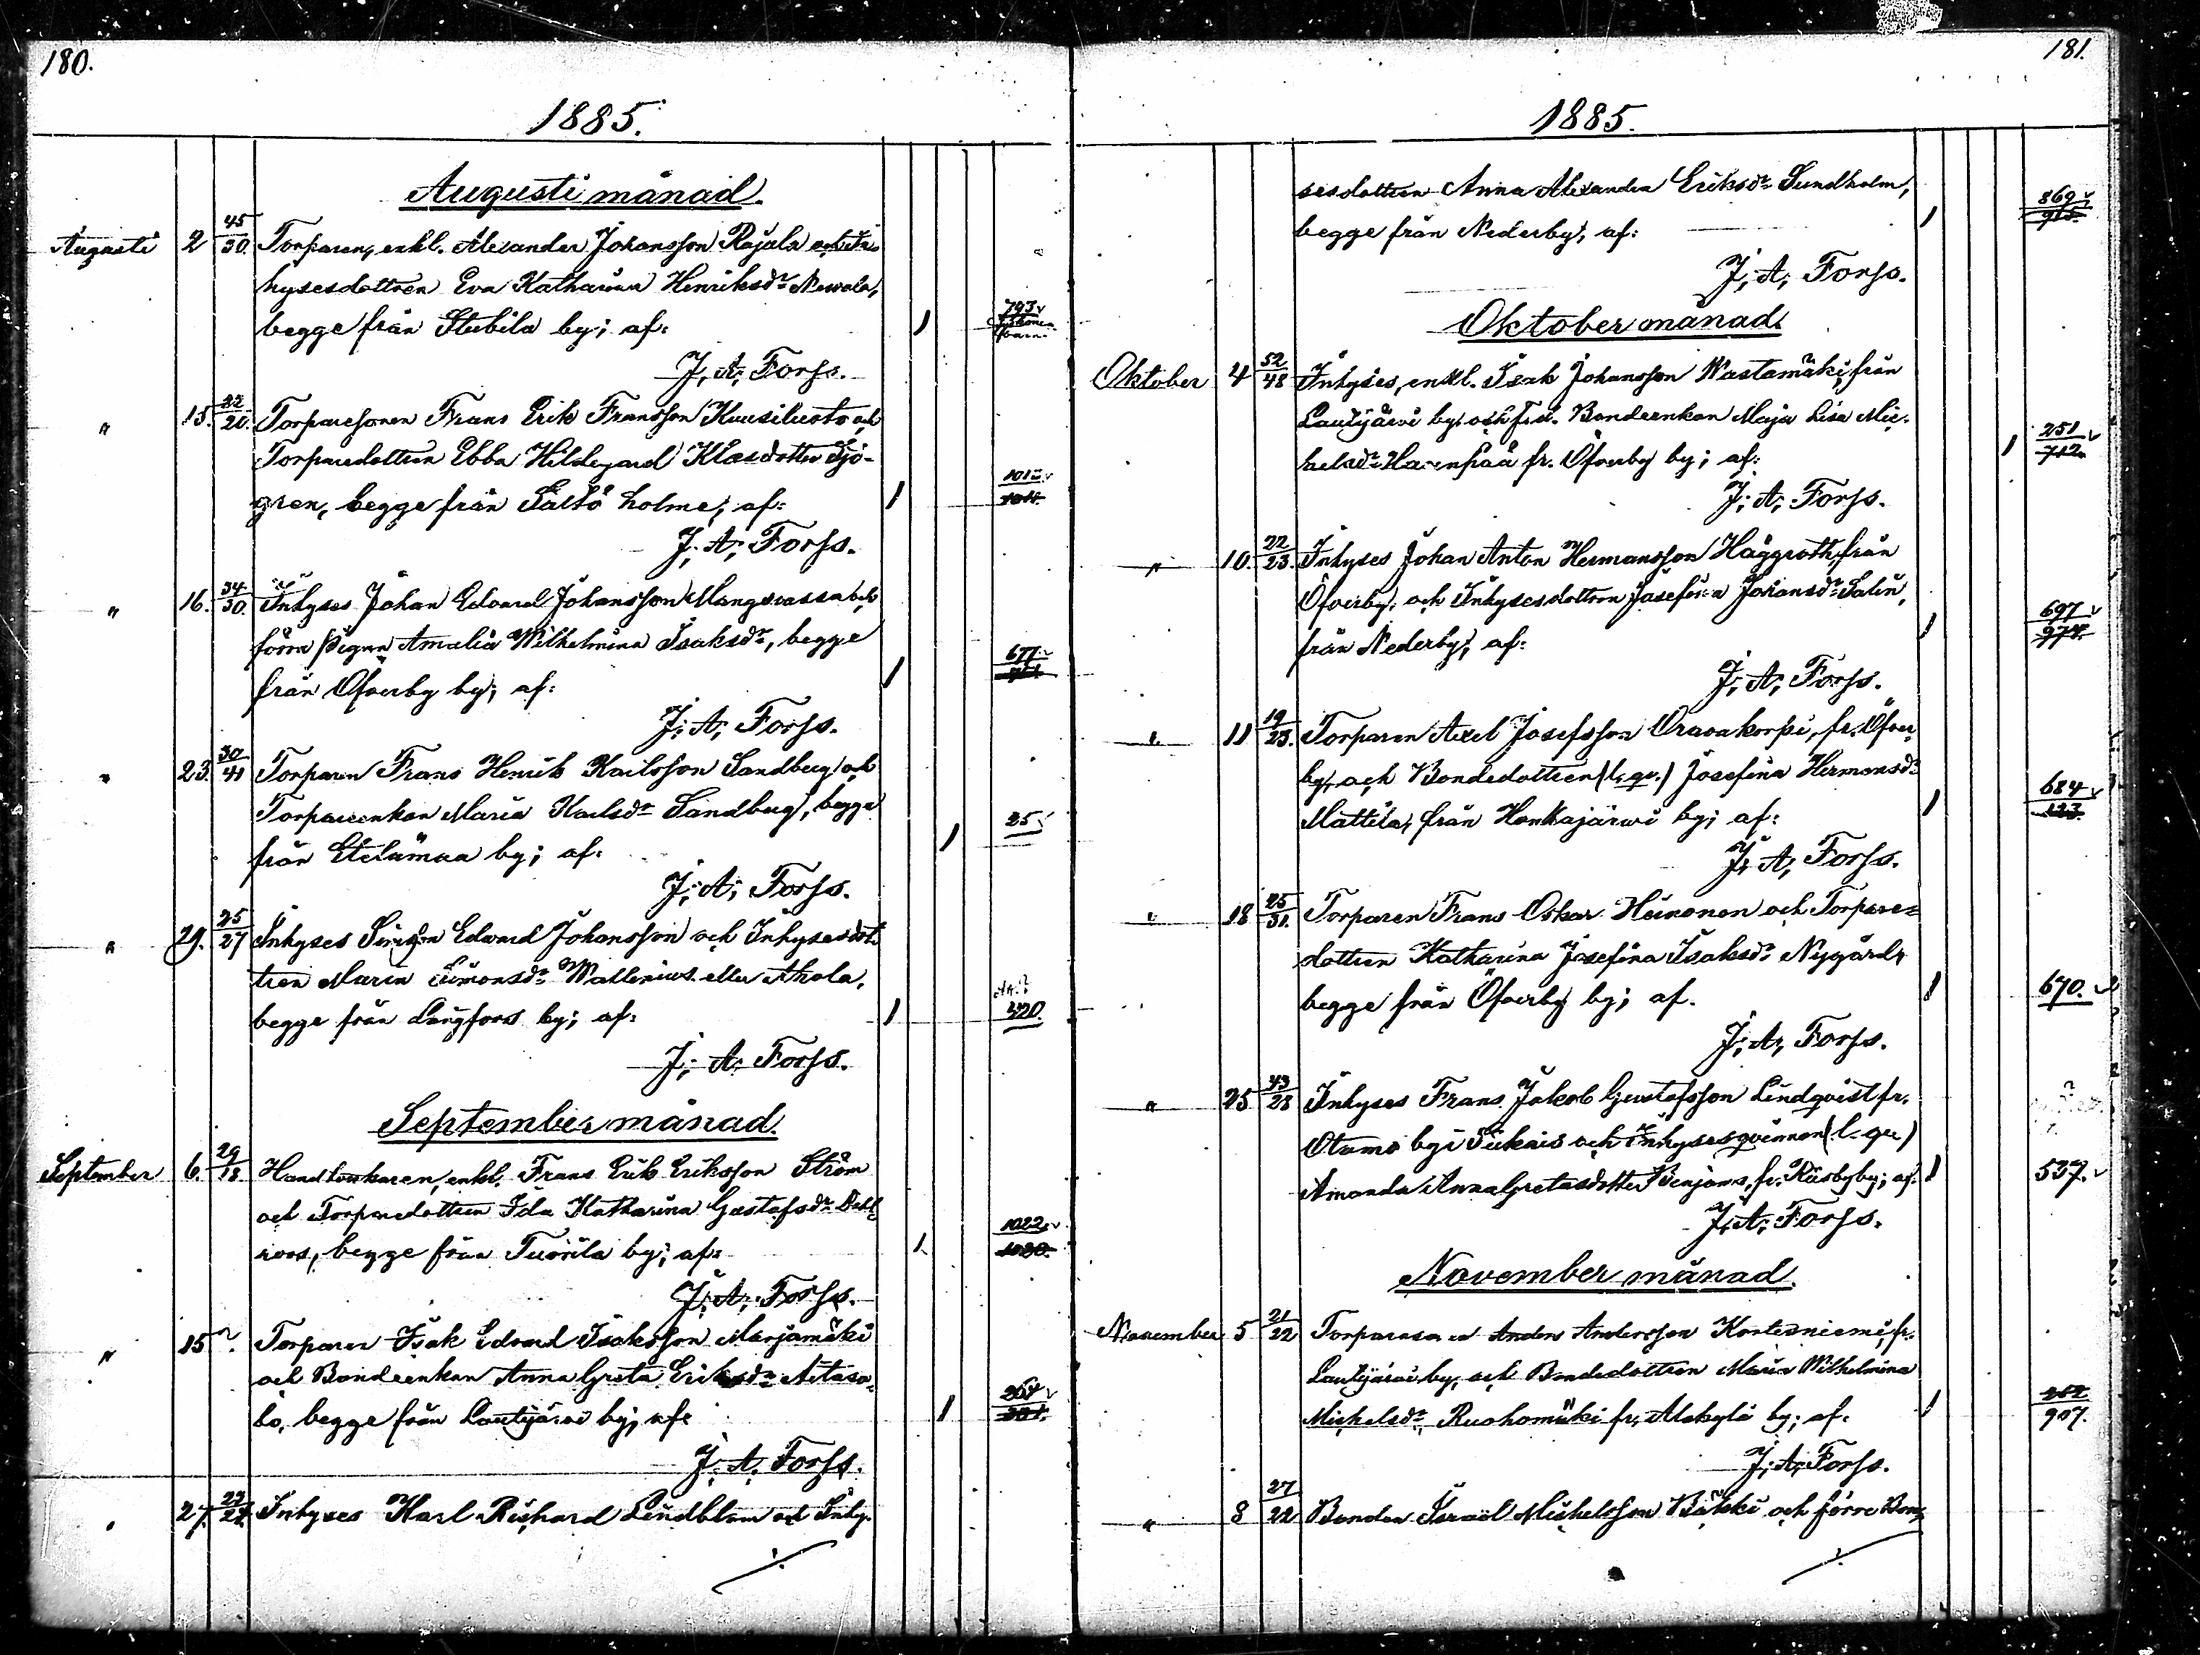 180.
1885.
Augusti månad.
Augusti 2 45/30. Torparen, enkl. Alexander Johansson Rajala och In-
hysesdottren Eva Katharina Henriksdr Newala,
begge från Stubila by; af: 793
J. A. Forss.
" 15. 22/20. Torparesonen Frans Erik Fransson Kuusiluoto och
Torparedottren Ebba Hildegard Klasdotter Sjö-
gren, begge från Saltö holme; af:
J. A. Forss.
" 16. 34/30. Inhyses Johan Edvard Johansson och
förra Pigan Amalia Wilhelmina Isaksdr, begge
från Öfverby by; af: 677
J. A. Forss.
" 23. 30/41 Torparen Frans Henrik Karlsson Sandberg och
Torpareenkan Maria Karlsdr Sandberg, begge
från Etelämaa by; af: 25
J. A. Forss.
" 29. 25/27 Inhyses Simon Edvard Johansson och Inhysesdot-
tren Maria Simonsdr Wallenius eller Ahola,
begge från Långfors by; af: 320.
J. A. Forss.
September månad.
September 6. 29/18. Handtverkaren, enkl. Frans Erik Eriksson Ström
och Torparedottren Ida Katharina Gustafsdr Dahl-
roos, begge från Tuorila by; af: 1022
J. A. Forss.
" 15 Torparen Isak Edvard Isaksson Marjamäki
och Bondeenkan Anna Greta Eriksdr Aitasa-
lo, begge från Lautjärvi by; af:
J. A. Forss.
27. 22/24. Inhyses Karl Richard Lindblom och Inhy-
181.
1885.
sesdottren Anna Alexandra Eriksdr Sundholm,
begge från Nederby, af: 869
J. A. Forss.
Oktober månad.
Oktober 4 52/48 Inhyses, enkl. Isak Johansson Wastamäki, från
Lautjärvi by, och Bondeenkan Maja Lisa Mic-
helsdr Haapapää fr. Öfverby by; af: 251 712
J. A. Forss.
" 10. 22/23. Inhyses Johan Anton Hermansson Häggroth, från
Öfverby, och Inhysesdottren Josefina Johansdr Salin,
från Nederby; af: 697 974.
J. A. Forss.
" 11 19/23. Torparen Axel Josefsson Oravakorpi, fr. Öfver-
by, och Bondedottren (l. qv.) Josefina Hermansdr
Mattila, från Honkajärvi by; af: 684 123.
J. A. Forss.
" 18 25/31. Torparen Frans Oskar Heinonen och Torpare-
dottren Katharina Josefina Isaksdr Nygård,
begge från Öfverby by; af. 670.
J. A. Forss.
" 25 43/28 Inhyses Frans Jakob Gustafsson Lindqvist fr.
Otamo by i Siikais och Inhysesqvinnan (l. qv.)
Amanda AnnaGretasdotter Benjams, fr. Riisbyby; af: 537.
J. A. Forss.
November månad.
November 5 21/22 Torparesonen Anders Andersson Kortesniemi, fr.
Lautjärvi by, och Bondedottren Maria Wilhelmina
Michelsdr Ruohomäki fr. Alakylä by; af: 262 907.
J. A. Forss.
" 8 27/22 Bonden Israël Michelsson Bäkki och förre Bon-